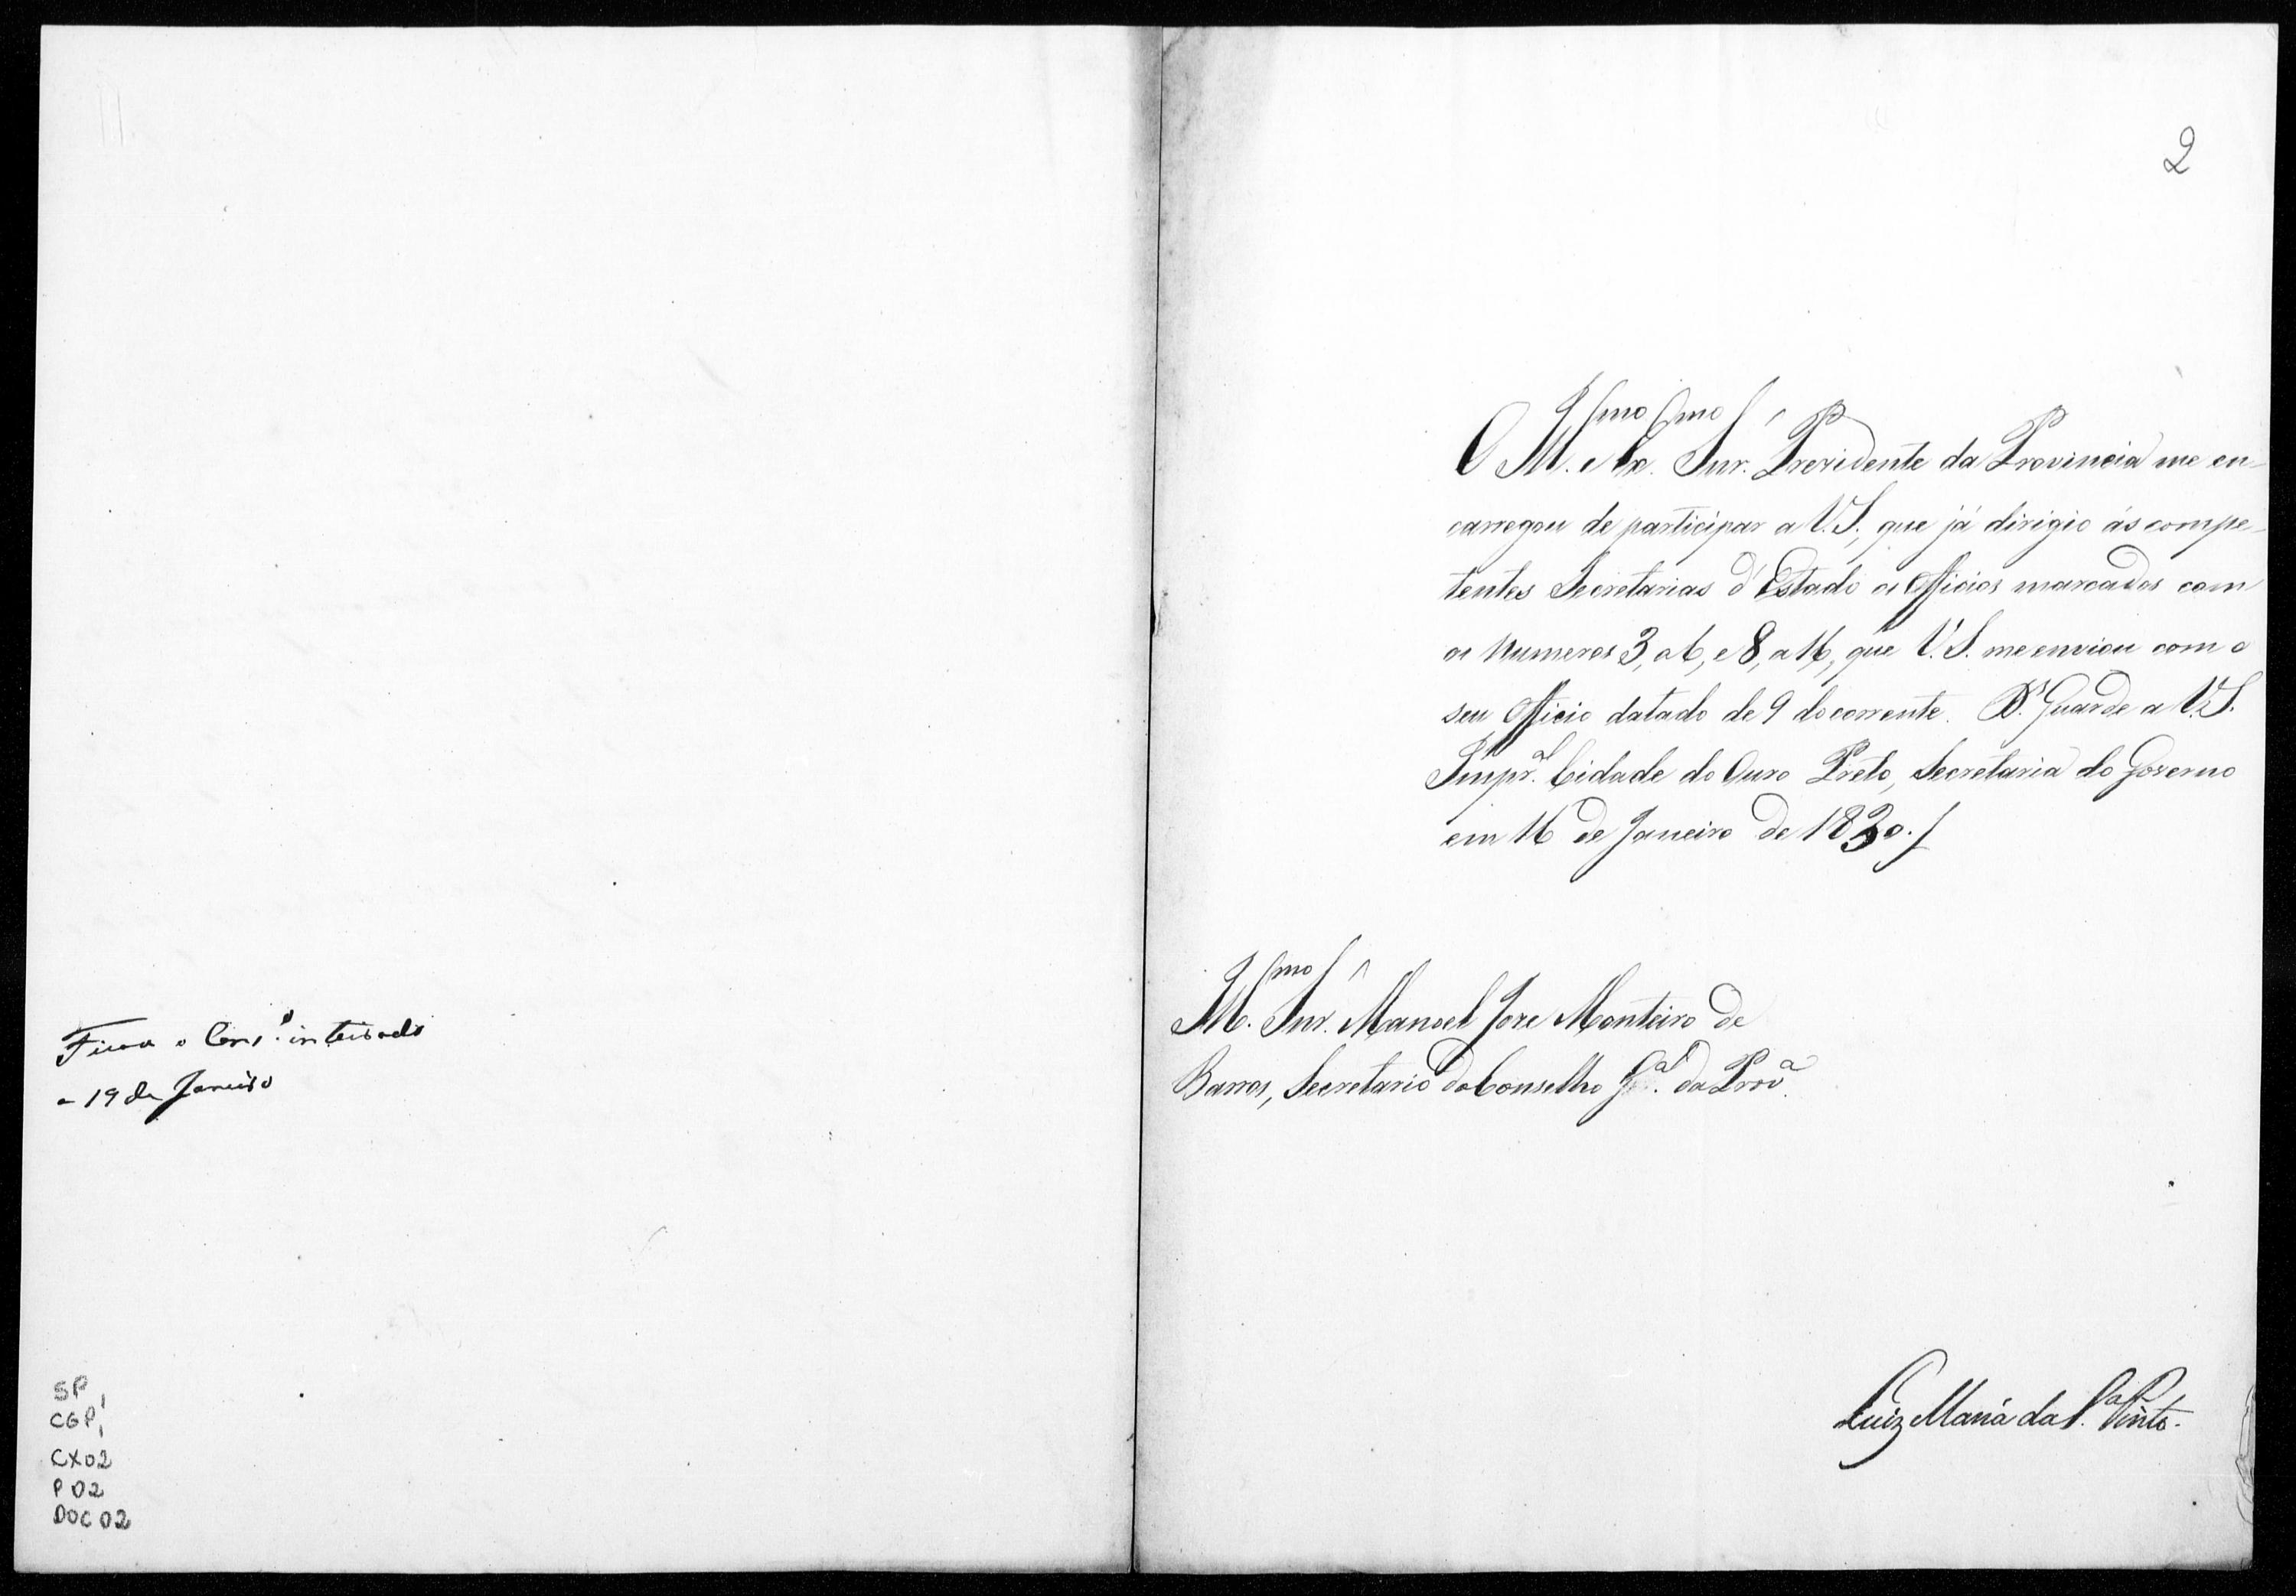 Fica o Cons.º inteirado
a 19 de Janeiro
SP
CGP1
CX02
P02
DOC 02
2
O Ill.mo e Ex.mo Snr. Prezidente da Provincia me en-
carregou de participar a V.S., que já dirigio ás compe-
tentes Secretarias d'Estado os Officios marcados com
os Numeros 3, a 6, e 8, a 16, que V.S. me enviou com o
seu Officio datado de 9 do corrente. D.s Guarde a V.S.
Imp.al Cidade do Ouro Preto, Secretaria do Governo
em 16 de Janeiro de 1830./
Ill.mo Snr. Manoel Joze Monteiro de
Barros, Secretario do Conselho G.al da Prov.a
Luiz Maria da S.a Pinto.